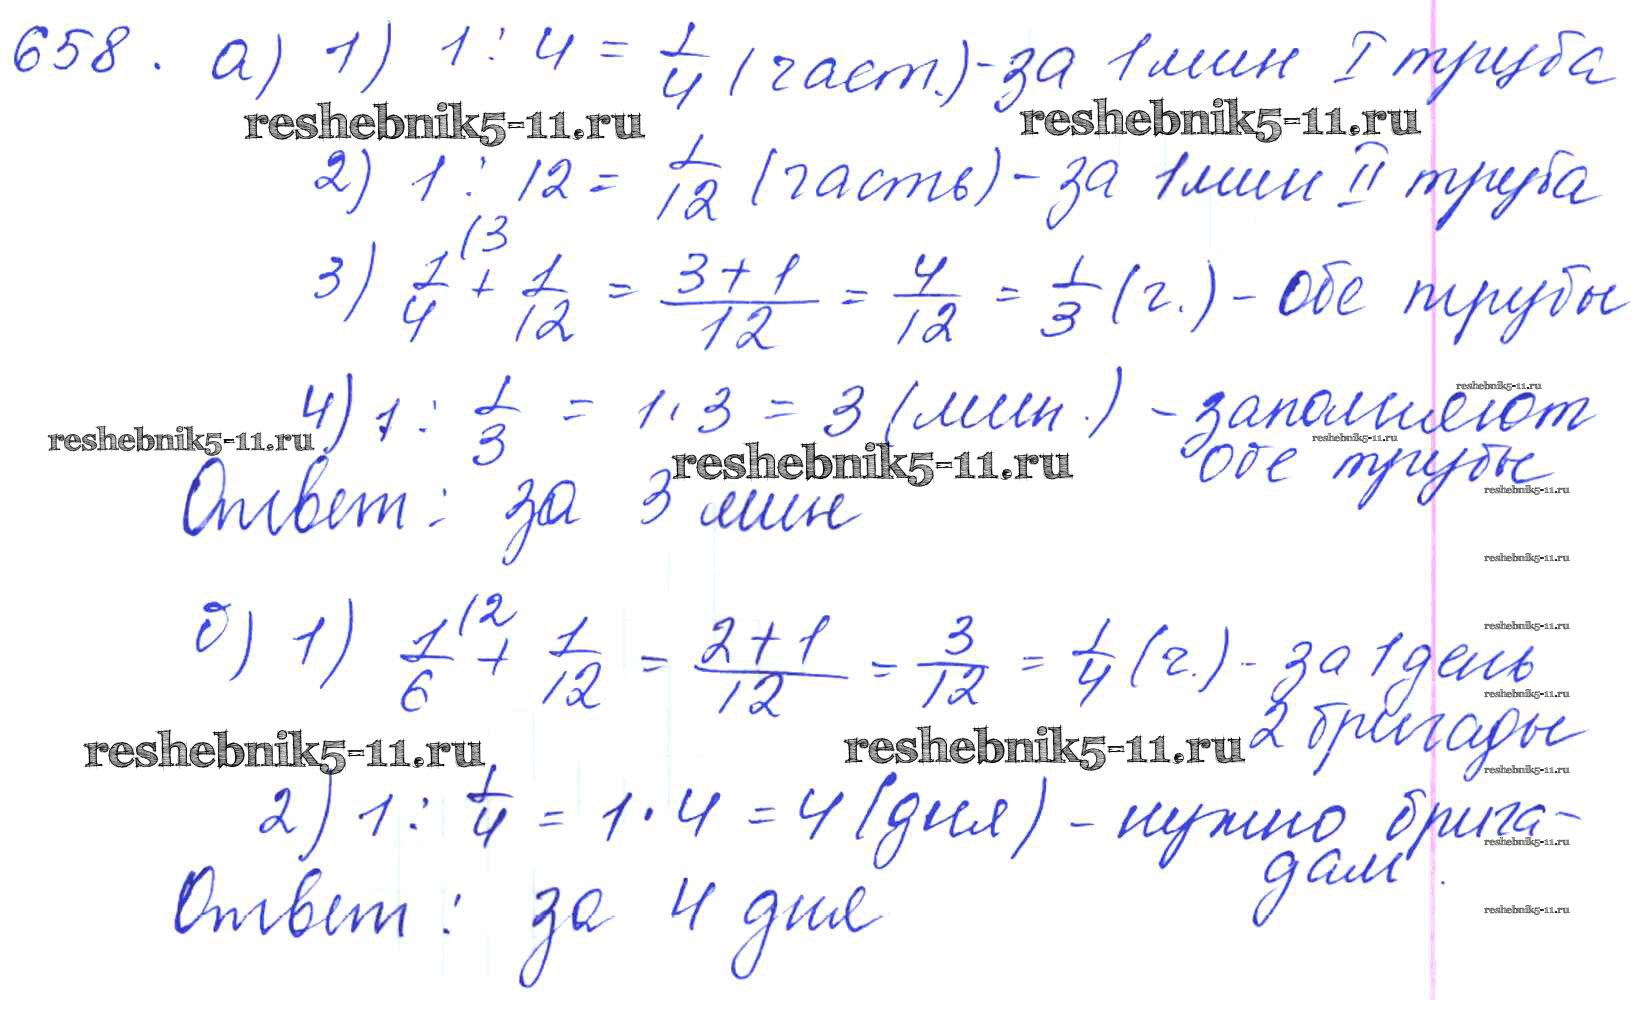 658. а) 1) 1 : 4 = 1/4 (част.) - за 1 мин I труба
reshebnik5-11.ru reshebnik5-11.ru
2) 1 : 12 = 1/12 (часть) - за 1 мин II труба
3) 1/4 (3 + 1/12 = 3+1/12 = 4/12 = 1/3 (ч.) - Обе трубы
reshebnik5-11.ru
4) 1 : 1/3 = 1 · 3 = 3 (мин.) - заполняют
reshebnik5-11.ru reshebnik5-11.ru
обе трубы
reshebnik5-11.ru
reshebnik5-11.ru
Ответ: за 3 мин
reshebnik5-11.ru
reshebnik5-11.ru
б) 1) 1/6 (2 + 1/12 = 2+1/12 = 3/12 = 1/4 (ч.) - за 1 день
reshebnik5-11.ru
2 бригады
reshebnik5-11.ru reshebnik5-11.ru
reshebnik5-11.ru
2) 1 : 1/4 = 1 · 4 = 4 (дня) - нужно брига-
reshebnik5-11.ru
дам.
Ответ: за 4 дня
reshebnik5-11.ru